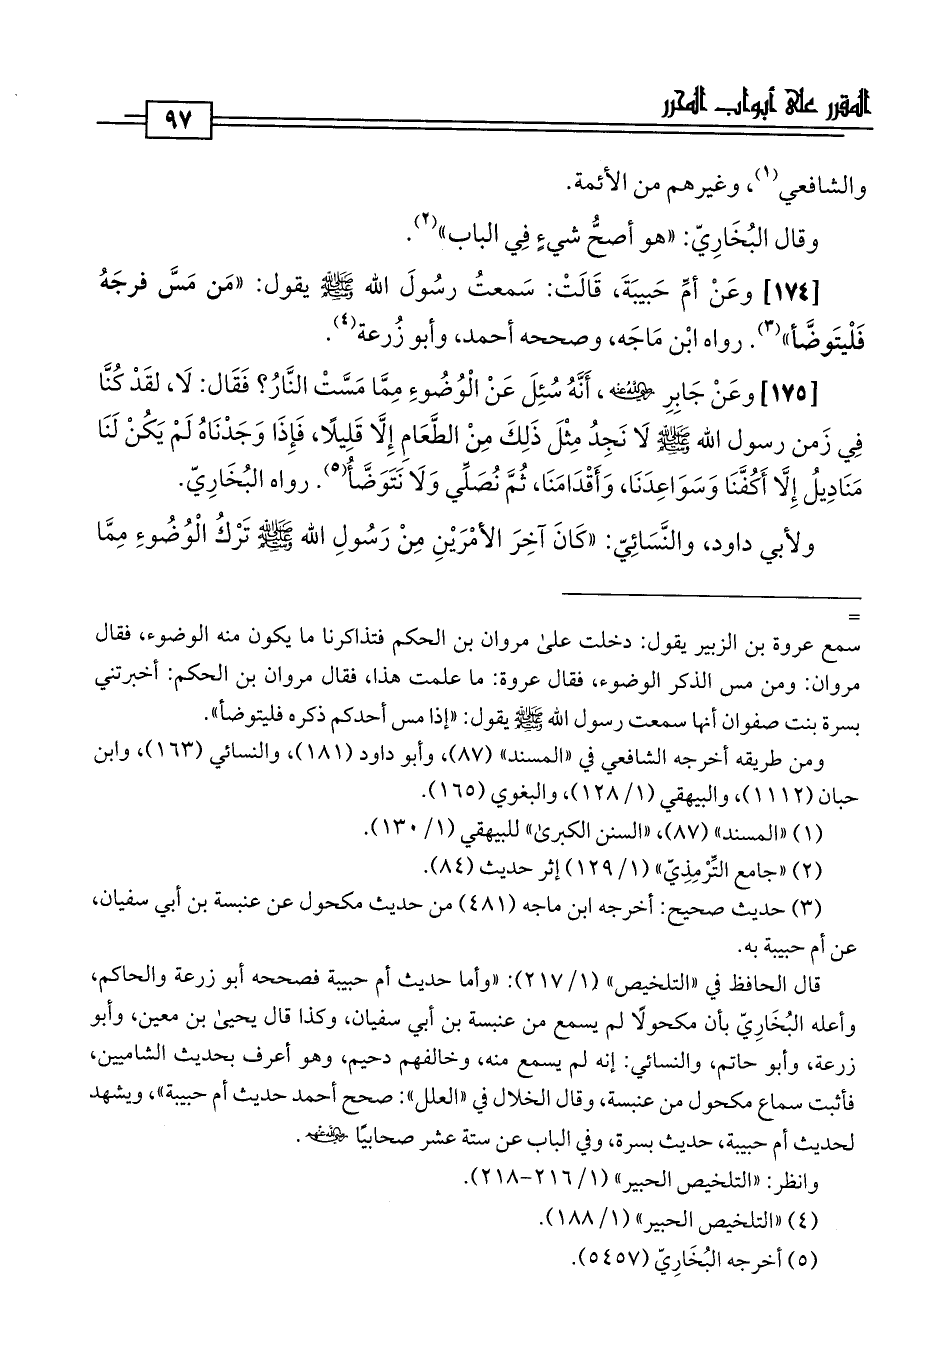 المقرر على أبواب المحرر
٩٧
والشافعي(١)، وغيرهم من الأئمة.
وقال البُخَارِيّ: «هو أصحُّ شيءٍ فِي الباب»(٢).
[١٧٤] وعَنْ أمِّ حَبِيبَةَ، قَالَتْ: سَمعتُ رسُولَ الله ﷺ يقول: «مَن مَسَّ فرجَهُ
فَلْيَتَوضَّأ»(٣). رواه ابْن مَاجَه، وصححه أحمد، وأبو زُرعة(٤).
[١٧٥] وعَنْ جَابِرٍ رضي الله عنه، أَنَّهُ سُئِلَ عَنْ الْوُضُوءِ مِمَّا مَسَّتْ النَّارُ؟ فَقَالَ: لَا، لقَدْ كُنَّا
فِي زَمن رسول الله ﷺ لَا نَجِدُ مِثْلَ ذَلِكَ مِنْ الطَّعَامِ إِلَّا قَلِيلًا، فَإِذَا وَجَدْنَاهُ لَمْ يَكُنْ لَنَا
مَنَادِيلُ إِلَّا أَكُفَّنَا وَسَوَاعِدَنَا، وَأَقْدَامَنَا، ثُمَّ نُصَلِّي وَلَا نَتَوَضَّأُ(٥). رواه البُخَارِيّ.
ولأبي داود، والنَّسَائِيّ: «كَانَ آخِرَ الأمْرَيْنِ مِنْ رَسُولِ الله ﷺ تَرْكُ الْوُضُوءِ مِمَّا
=
سمع عروة بن الزبير يقول: دخلت علىٰ مروان بن الحكم فتذاكرنا ما يكون منه الوضوء، فقال
مروان: ومن مس الذكر الوضوء، فقال عروة: ما علمت هذا، فقال مروان بن الحكم: أخبرتني
بسرة بنت صفوان أنها سمعت رسول الله ﷺ يقول: «إذا مس أحدكم ذكره فليتوضأ».
ومن طريقه أخرجه الشافعي في «المسند» (٨٧)، وأبو داود (١٨١)، والنسائي (١٦٣)، وابن
حبان (١١١٢)، والبيهقي (١/ ١٢٨)، والبغوي (١٦٥).
(١) «المسند» (٨٧)، «السنن الكبرىٰ» للبيهقي (١/ ١٣٠).
(٢) «جامع التِّرْمِذِيّ» (١/ ١٢٩) إثر حديث (٨٤).
(٣) حديث صحيح: أخرجه ابن ماجه (٤٨١) من حديث مكحول عن عنبسة بن أبي سفيان،
عن أم حبيبة به.
قال الحافظ في «التلخيص» (١/ ٢١٧): «وأما حديث أم حبيبة فصححه أبو زرعة والحاكم،
وأعله البُخَارِيّ بأن مكحولًا لم يسمع من عنبسة بن أبي سفيان، وكذا قال يحيىٰ بن معين، وأبو
زرعة، وأبو حاتم، والنسائي: إنه لم يسمع منه، وخالفهم دحيم، وهو أعرف بحديث الشاميين،
فأثبت سماع مكحول من عنبسة، وقال الخلال في «العلل»: صحح أحمد حديث أم حبيبة»، ويشهد
لحديث أم حبيبة، حديث بسرة، وفي الباب عن ستة عشر صحابيًا رضي الله عنهم.
وانظر: «التلخيص الحبير» (١/ ٢١٦-٢١٨).
(٤) «التلخيص الحبير» (١/ ١٨٨).
(٥) أخرجه البُخَارِيّ (٥٤٥٧).